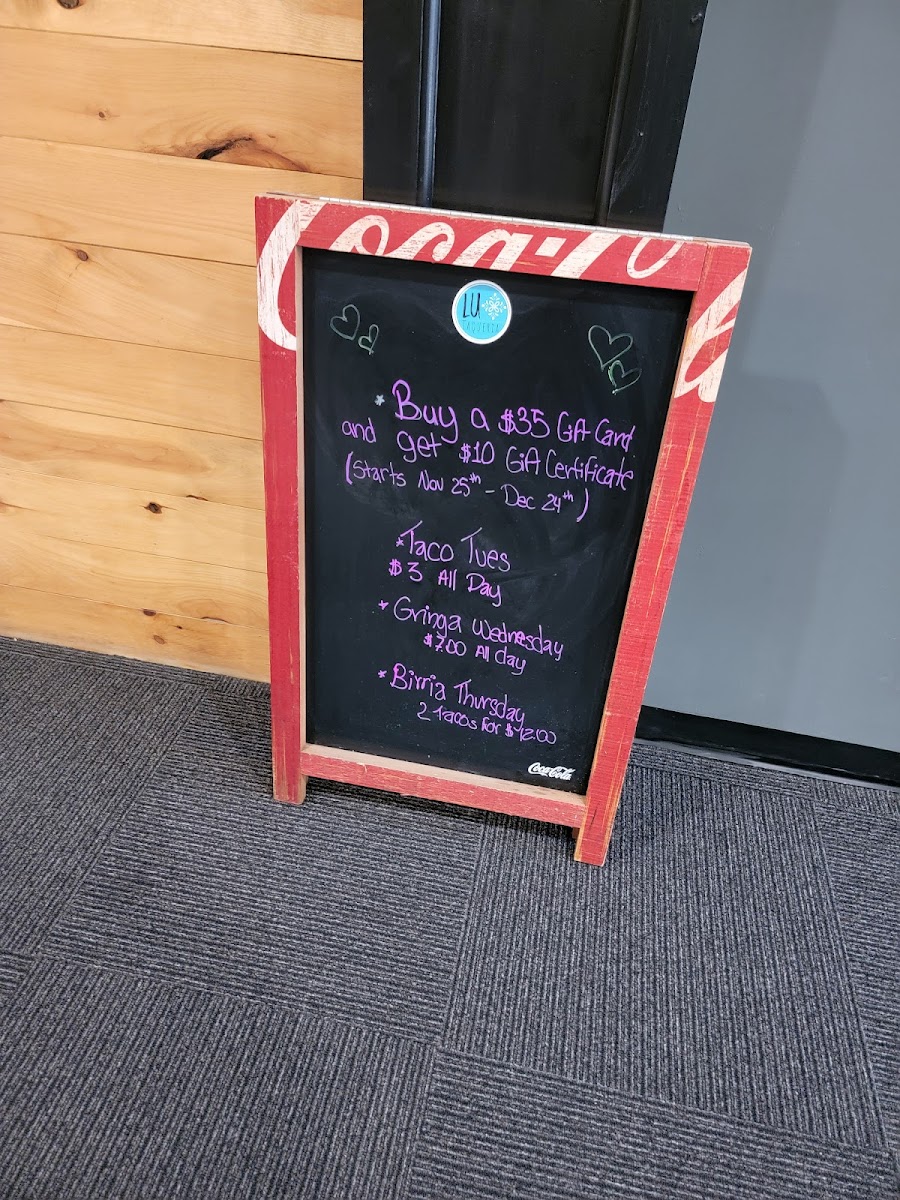 Coca-Cola
LU
TAQUERIA
* Buy a $35 Gift Card
and get $10 Gift Certificate
(Starts Nov 25th - Dec 24th)
* Taco Tues
$3 All Day
* Gringa Wednesday
$7.00 All day
* Birria Thursday
2 tacos for $12.00
Coca-Cola